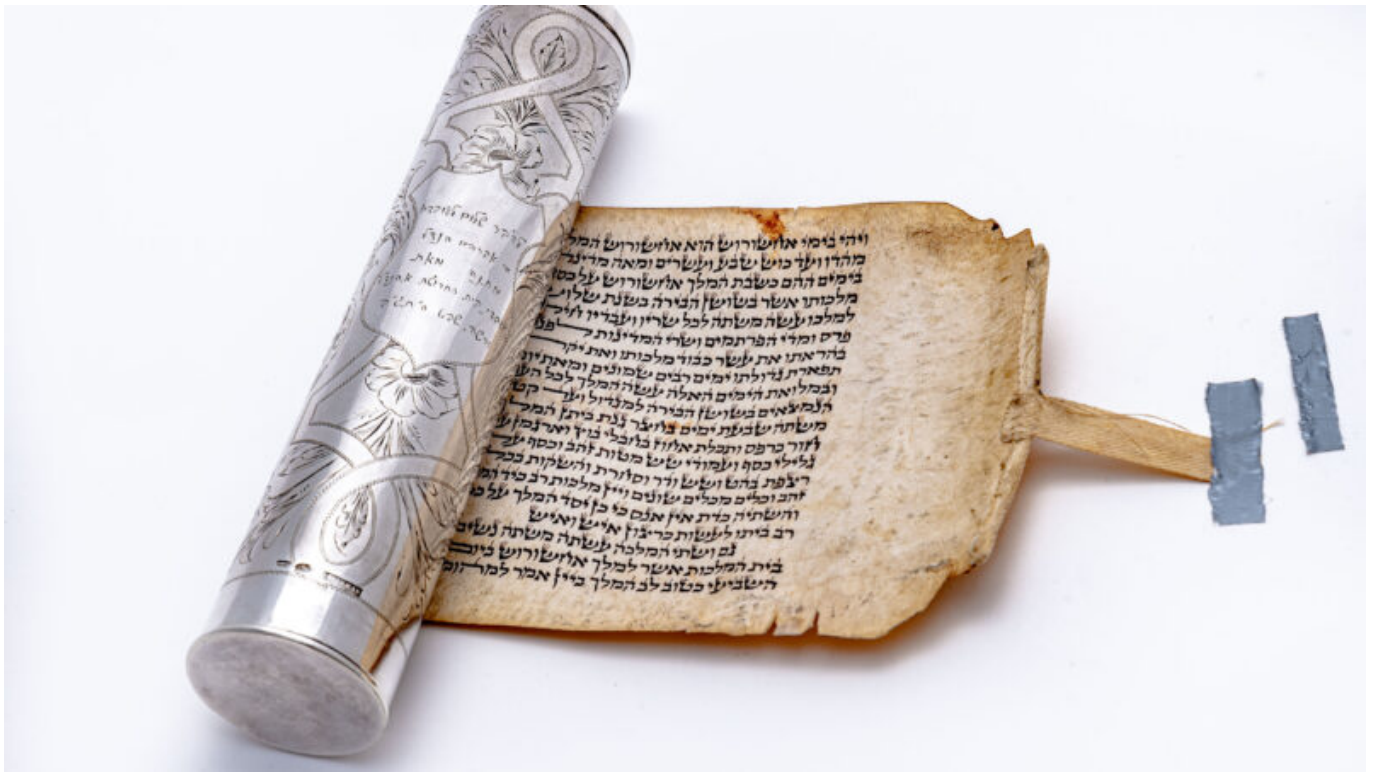 שלום
אברהם
מאת
ויהי בימי אחשורוש הוא אחשורוש
מהדו ועד כוש שבע ועשרים ומאה
בימים ההם כשבת המלך אחשורוש על
מלכותו אשר בשושן הבירה בשנת שלוש
למלכו עשה משתה לכל שריו ועבדיו
פרס ומדי הפרתמים ושרי המדינות
בהראתו את עשר כבוד מלכותו ואת יקר
תפארת גדולתו ימים רבים שמונים ומאת
ובמלואת הימים האלה עשה המלך לכל
הנמצאים בשושן הבירה למגדול ועד
משתה שבעת ימים בחצר גנת ביתן
חור כרפס ותכלת אחוז בחבלי בוץ וארגמן
גלילי כסף ועמודי שש מטות זהב וכסף על
רצפת בהט ושש ודר וסחרת והשקות
זהב וכלים מכלים שונים ויין מלכות רב כיד
והשתיה כדת אין אנס כי כן יסד המלך על
רב ביתו לעשות כרצון איש ואיש
גם ושתי המלכה עשתה משתה נשים
בית המלכות אשר למלך אחשורוש ביום
השביעי כטוב לב המלך ביין אמר